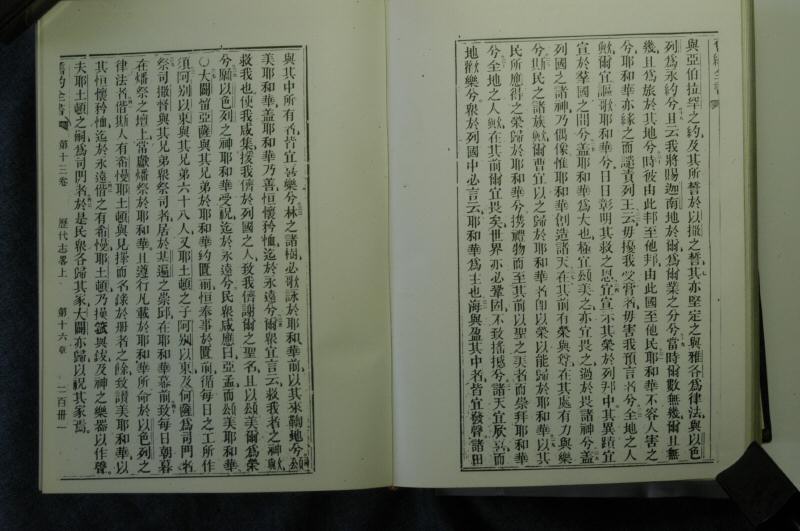 舊約全書
與亞伯拉罕之約及其所誓於以撒之誓其亦堅定之與雅各爲律法與以色
列爲永約兮且云我將賜迦南地於爾爲爾業之分兮當時爾數無幾爾且無
幾且爲旅於其地兮時彼由此邦至他邦由此國至他民耶和華不容人害之
兮耶和華亦緣之而譴責列王云毋擾我受膏者毋害我預言者兮全地之人
歟爾宜謳歌耶和華兮日日彰明其救之恩宜宣示其榮於列邦中其異蹟宜
宣於羣國之間兮蓋耶和華爲大也極宜頌美之亦宜畏之過於畏諸神兮蓋
列國之諸神乃偶像惟耶和華創造諸天在其前有榮與尊在其處有力與樂
兮斯民之諸族歟爾曹宜以之歸於耶和華者卽以榮以能歸於耶和華以其
民所應得之榮歸於耶和華兮攜禮物而至其前以聖之美者而崇拜耶和華
兮全地之人歟在其前爾宜畏矣世界亦必鞏固不致搖撼兮諸天宜欣喜而
地歡樂兮衆於列國中必言云耶和華爲王也海與盈其中者皆宜發聲諸田
與其中所有者皆宜喜樂兮林之諸樹必歌詠於耶和華前以其來鞫地兮
美耶和華蓋耶和華乃善恒懷矜恤迄於永遠兮爾衆宜言云救我者之神歟
救我也使我咸集援我儕於列國之人致我儕謝爾之聖名且以頌美爾爲榮
兮願以色列之神耶和華受祝迄於永遠兮民衆咸應曰亞孟而頌美耶和華
〇大闢留亞薩與其兄弟於耶和華約匱前恒奉事於匱前循每日之工所作
須阿別以東與其兄弟六十八人又耶土頓之子阿別以東及何薩爲司門者
祭司撒督與其兄弟衆祭司者居於基遍之崇邱在耶和華幕前致每日朝暮
在燔祭之壇上當獻燔祭於耶和華且遵行凡載於耶和華所命於以色列之
律法者偕斯人有希慢耶土頓與見擇而名錄於册者之餘致讚美耶和華以
其恒懷矜恤迄於永遠偕之有希慢耶土頓乃操號與鈸及神之樂器以作聲
夫耶土頓之嗣爲司門者於是民衆各歸其家大闢亦歸以祝其家焉
舊約全書 第十三卷 歷代志畧上 第十六章 二百卅一